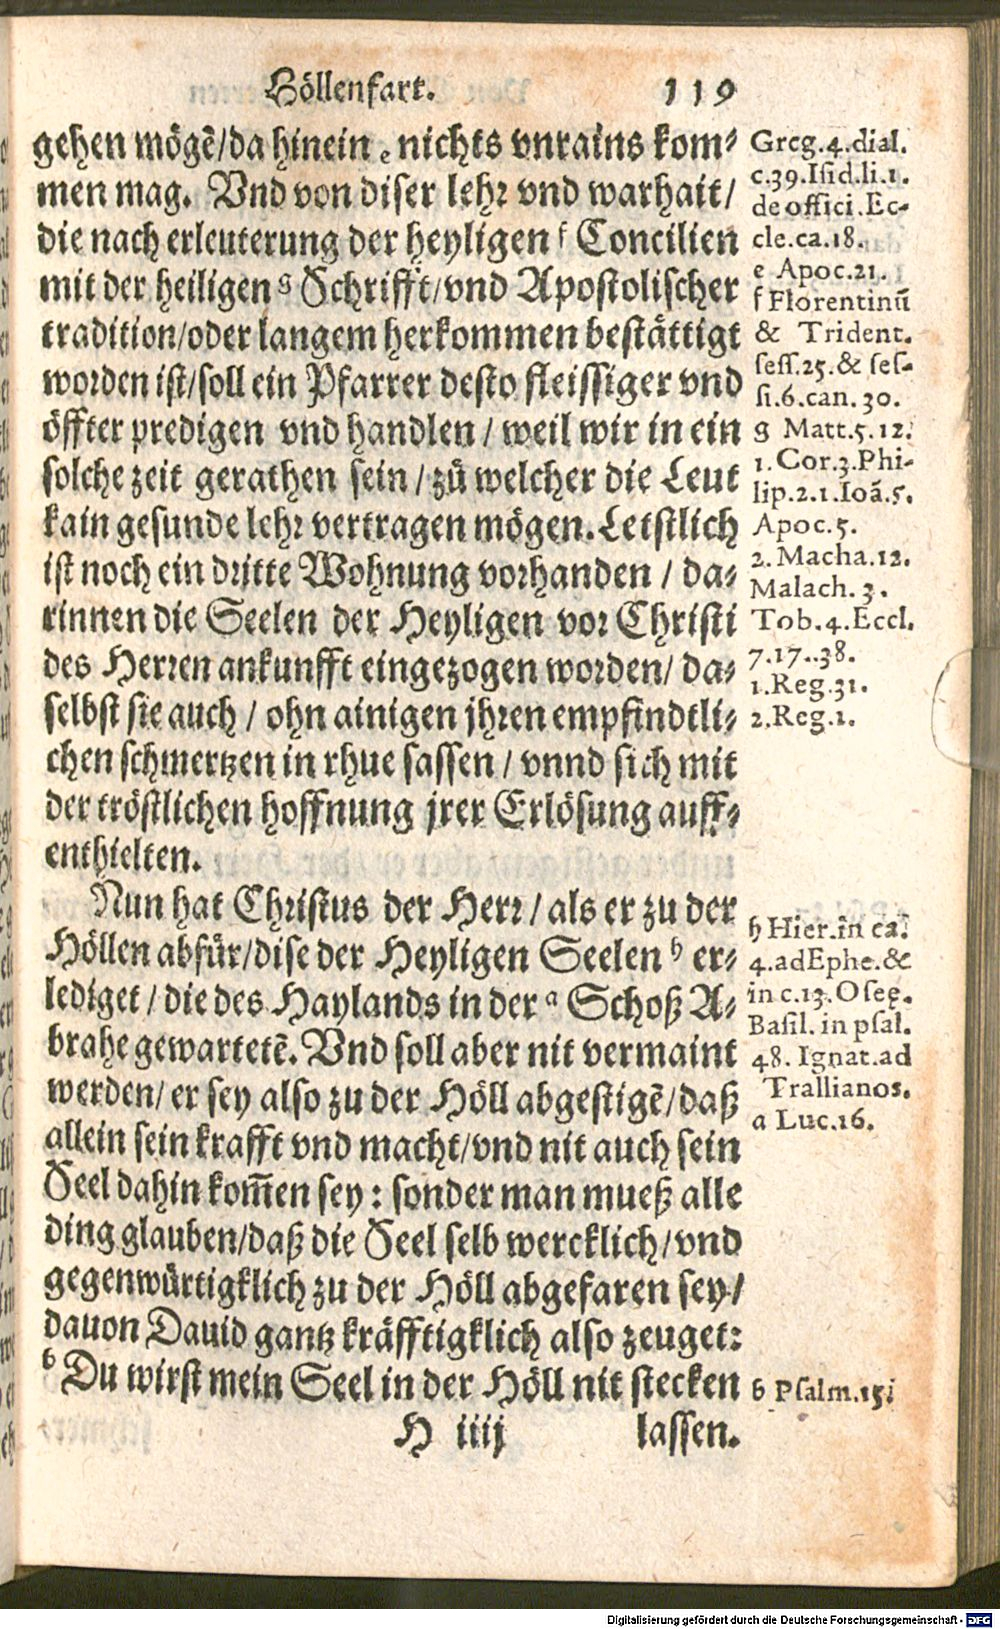 Höllenfart. 119
gehen mögē/da hinein e nichts vnrains kom⸗
men mag. Vnd von diser lehr vnd warhait/
die nach erleuterung der heyligen f Concilien
mit der heiligen g Schrifft/vnd Apostolischer
tradition/oder langem herkommen bestättigt
worden ist/soll ein Pfarrer desto fleissiger vnd
öffter predigen vnd handlen / weil wir in ein
solche zeit gerathen sein / zů welcher die Leut
kain gesunde lehr vertragen mögen. Letstlich
ist noch ein dritte Wohnung vorhanden / da⸗
rinnen die Seelen der Heyligen vor Christi
des Herren ankunfft eingezogen worden/ da⸗
selbst sie auch / ohn ainigen jhren empfindtli⸗
chen schmertzen in rhue sassen / vnnd sich mit
der tröstlichen hoffnung jrer Erlösung auff⸗
enthielten.
Nun hat Christus der Herr / als er zu der
Höllen abfůr/dise der Heyligen Seelen h er⸗
lediget / die des Haylands in der a Schoß A⸗
brahe gewartetē. Vnd soll aber nit vermaint
werden/ er sey also zu der Höll abgestigē/daß
allein sein krafft vnd macht/vnd nit auch sein
Seel dahin kom̄en sey : sonder man mueß alle
ding glauben/daß die Seel selb wercklich/vnd
gegenwürtigklich zu der Höll abgefaren sey/
dauon Dauid gantz kräfftigklich also zeuget:
b Du wirst mein Seel in der Höll nit stecken
H iiij lassen.
Greg. 4. dial.
c.39. Isid. li. 1.
de offici. Ec-
cle. ca. 18.
e Apoc. 21.
f Florentinū
& Trident.
sess. 25. & ses-
si. 6. can. 30.
g Matt. 5. 12.
1. Cor. 3. Phi-
lip. 2. 1. Ioā. 5.
Apoc. 5.
2. Macha. 12.
Malach. 3.
Tob. 4. Eccl.
7. 17. 38.
1. Reg. 31.
2. Reg. 1.
h Hier. in ca.
4. ad Ephe. &
in c. 13. Oseę.
Basil. in psal.
48. Ignat. ad
Trallianos.
a Luc. 16.
b Psalm. 15.
Digitalisierung gefördert durch die Deutsche Forschungsgemeinschaft - DFG